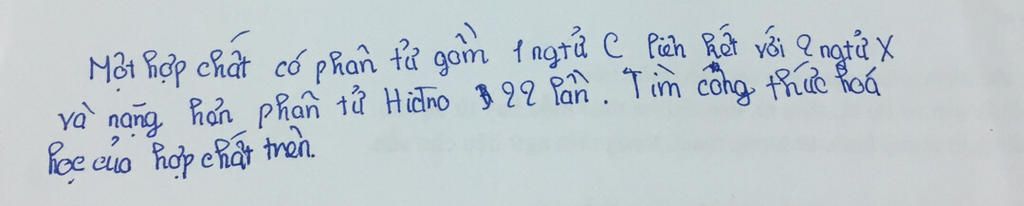 Một hợp chất có phân tử gồm 1 ngtử C liên kết với 2 ngtử X
và nặng hơn phân tử Hiđno 22 lần. Tìm công thức hoá
học của hợp chất trên.